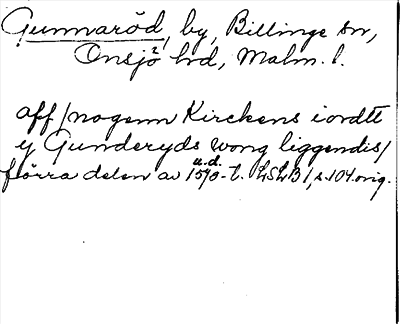 Gunnaröd, by, Billinge sn,
Onsjö hd, Malm. l.
aff / nogenn Kirckens iordtt
y Gunderyds wong liggendis /
u.d.
förra delen av 1570-t. LSLB 1, s. 104 orig.